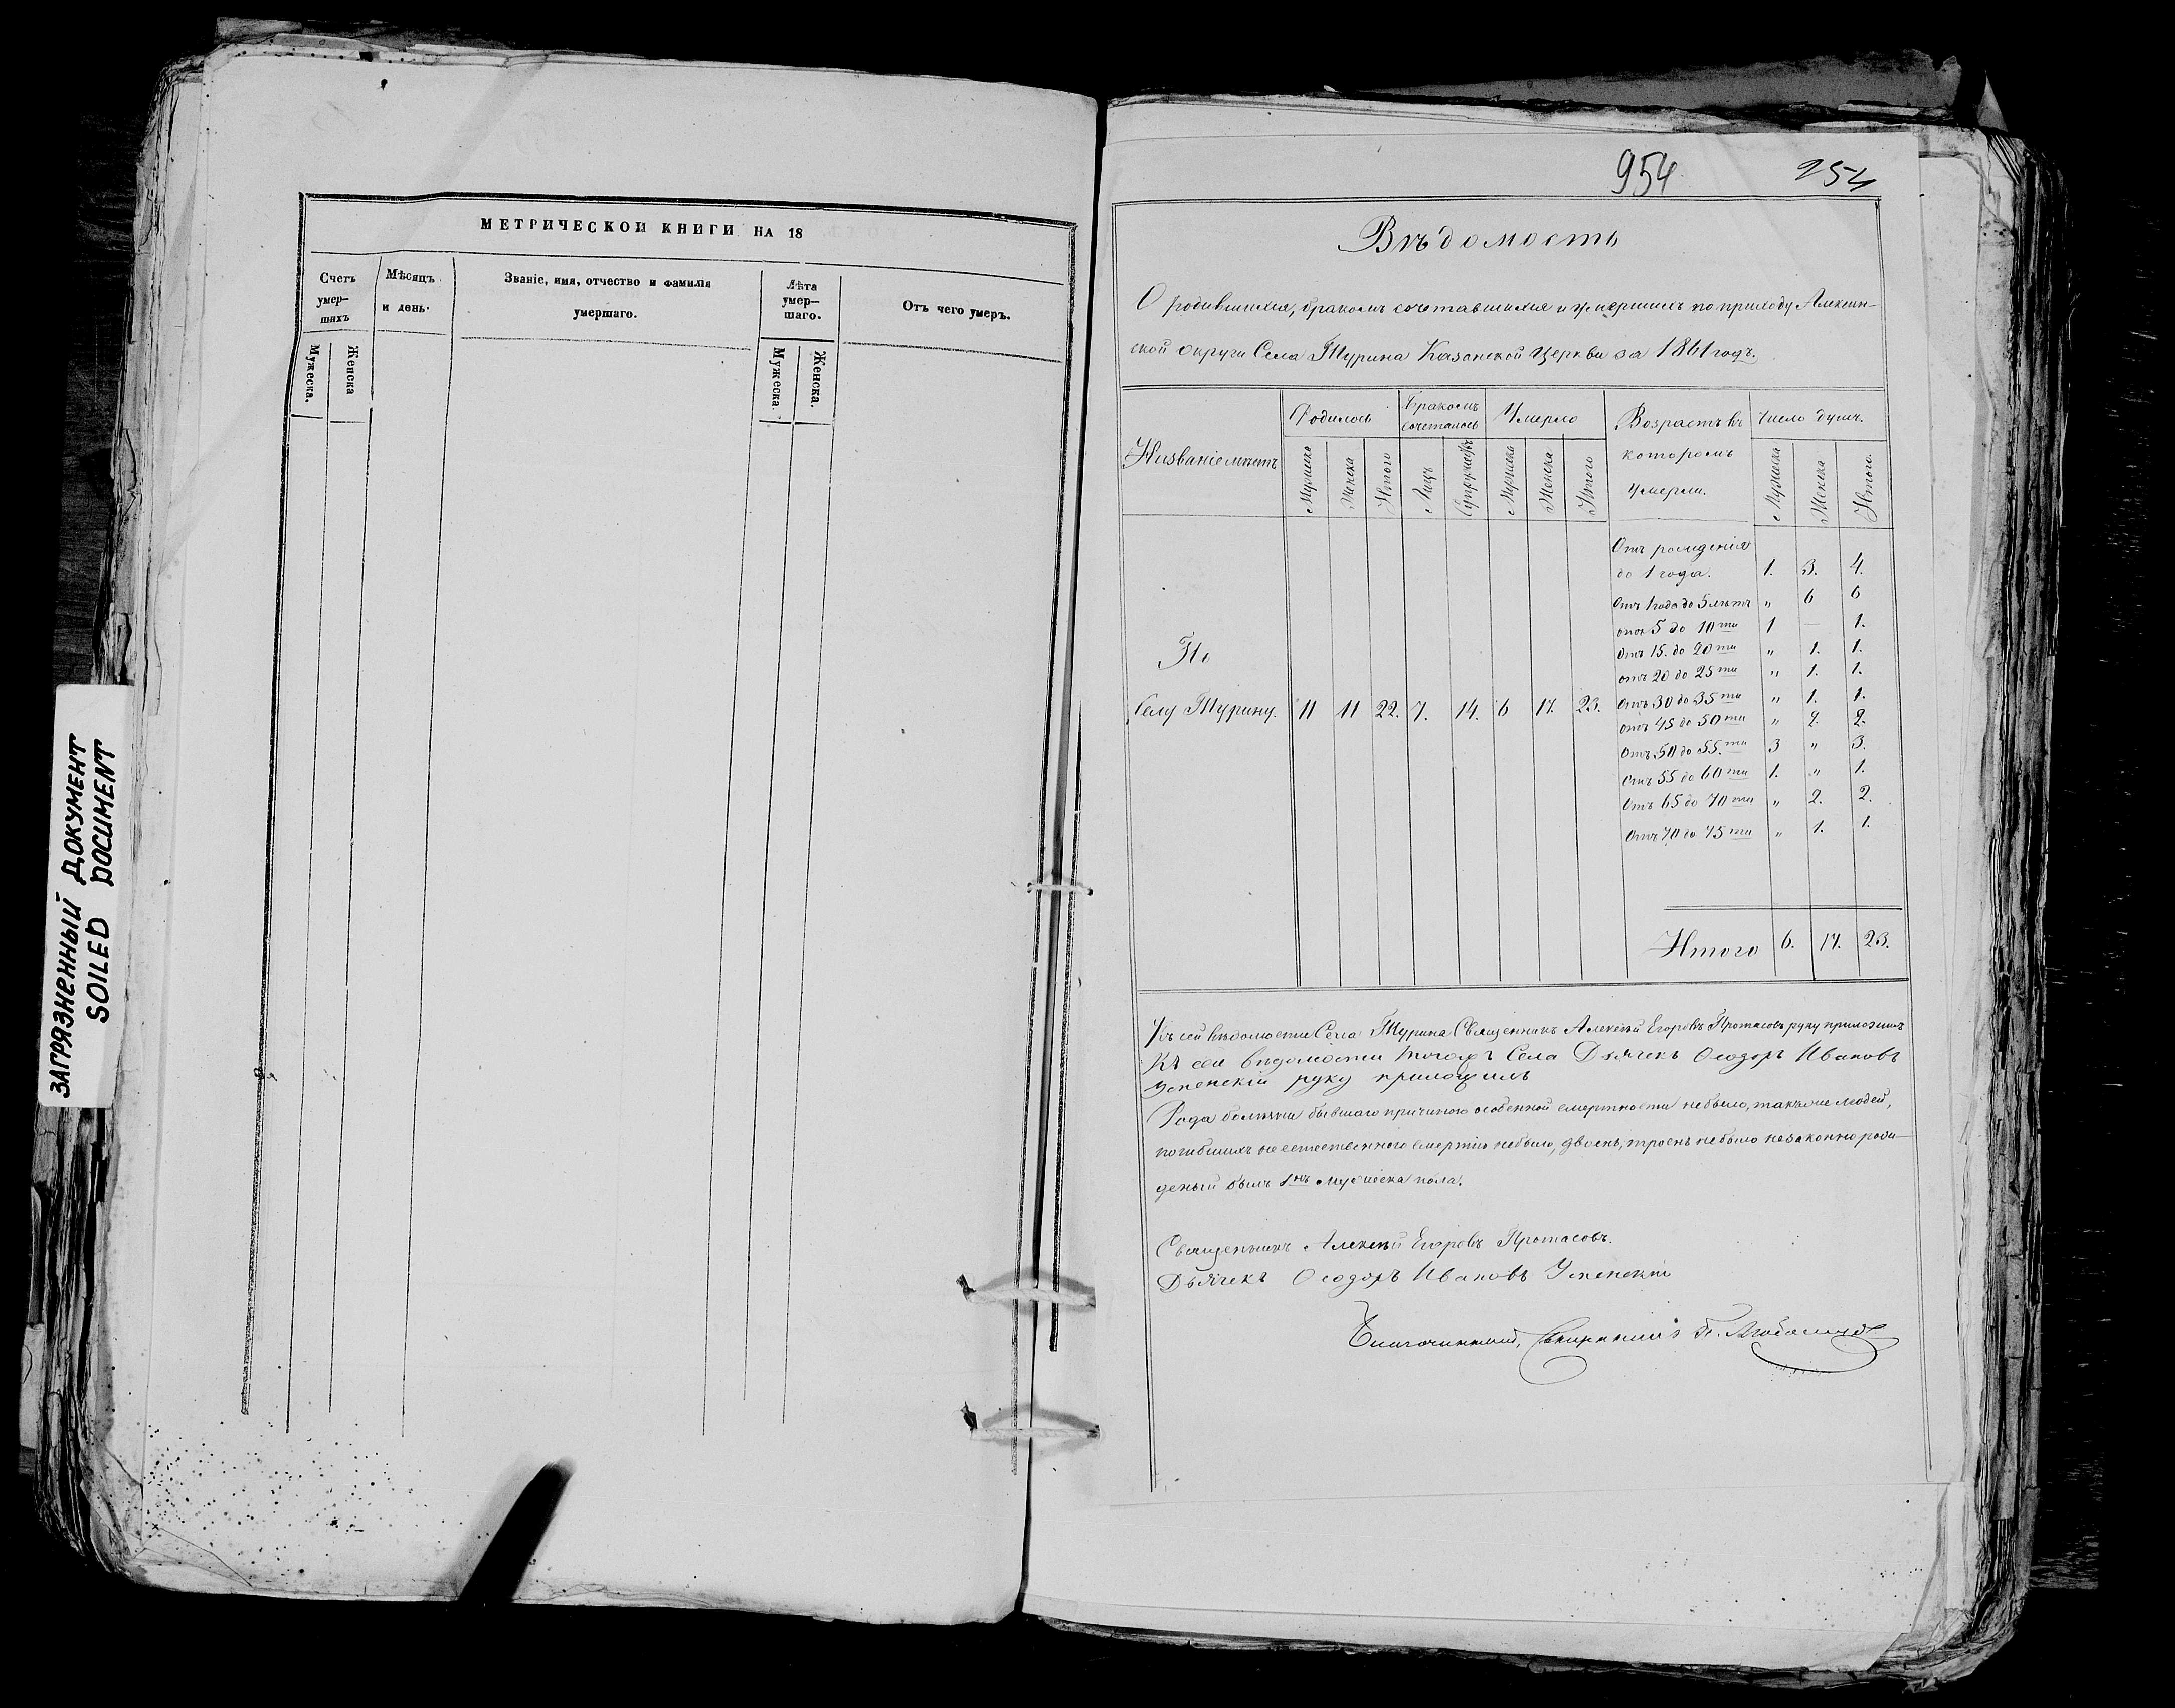 ЗАГРЯЗНЕННЫЙ ДОКУМЕНТ
SOILED DOCUMENT
МЕТРИЧЕСКОЙ КНИГИ НА 18
Счетъ умер-шихъ
Мѣсяцъ и день.
Званіе, имя, отчество и фамилія умершаго.
Лѣта умер-шаго.
Отъ чего умеръ.
Мужеска. Женска
Мужеска. Женска.
954 254
Вѣдомость
О родившихся, бракомъ сочетавшихся и умершихъ по приходу Алексин-
ской округи Села Тҍурина Казанской Церкви за 1861 годъ.
Названіе мѣстъ
Родилось
Бракомъ сочеталось
Умерло
Возрастъ въ которомъ умерли.
Число душъ.
Мужеска Женска Итого Лицъ Супружествъ Мужеска Женска Итого Мужеска Женска Итого.
Отъ рожденія
до 1 года. 1. 3. 4.
Отъ 1 года до 5 лѣтъ " 6 6
отъ 5 до 10ти 1 — 1.
Отъ 15. до 20ти " 1. 1.
отъ 20 до 25ти " 1. 1.
По
Селу Тҍурину. 11 11 22. 7. 14. 6 17. 23. Отъ 30 до 35ти " 1. 1.
отъ 45 до 50ти " 2. 2.
Отъ 50 до 55.ти 3 " 3.
Отъ 55 до 60ти 1. " 1.
Отъ 65 до 70ти " 2. 2.
Отъ 70 до 75ти " 1. 1.
Итого 6. 17. 23.
Къ сей вѣдомости Села Священникъ Алексѣй Егоровъ Протасовъ руку приложилъ
Къ сей вѣдомости тогожъ Села Дьячекъ Ѳеодоръ Ивановъ
Успенскій руку приложилъ
Рода болѣзни бывшаго причиною особенной смертности небыло, также людей,
погибшихъ неестественною смертію небыло, двоень, троень небыло незаконно рож-
деный былъ 1нъ мужеска пола.
Священникъ Алексѣй Егоровъ Протасовъ.
Дьячекъ Ѳеодоръ Ивановъ Успенскій
Благочинный, Священникъ П.